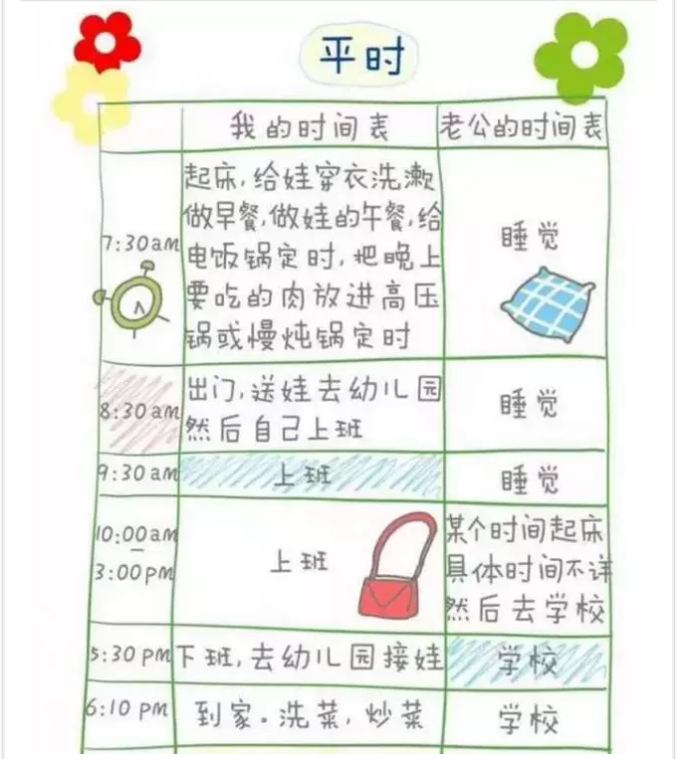 平时
我的时间表 老公的时间表
7:30am
起床,给娃穿衣洗漱
做早餐,做娃的午餐,给
电饭锅定时,把晚上
要吃的肉放进高压
锅或慢炖锅定时
睡觉
8:30am
出门,送娃去幼儿园
然后自己上班
睡觉
9:30am 上班 睡觉
10:00am
—
3:00pm
上班
某个时间起床
具体时间不详
然后去学校
5:30 PM 下班,去幼儿园接娃 学校
6:10 PM 到家。洗菜,炒菜 学校